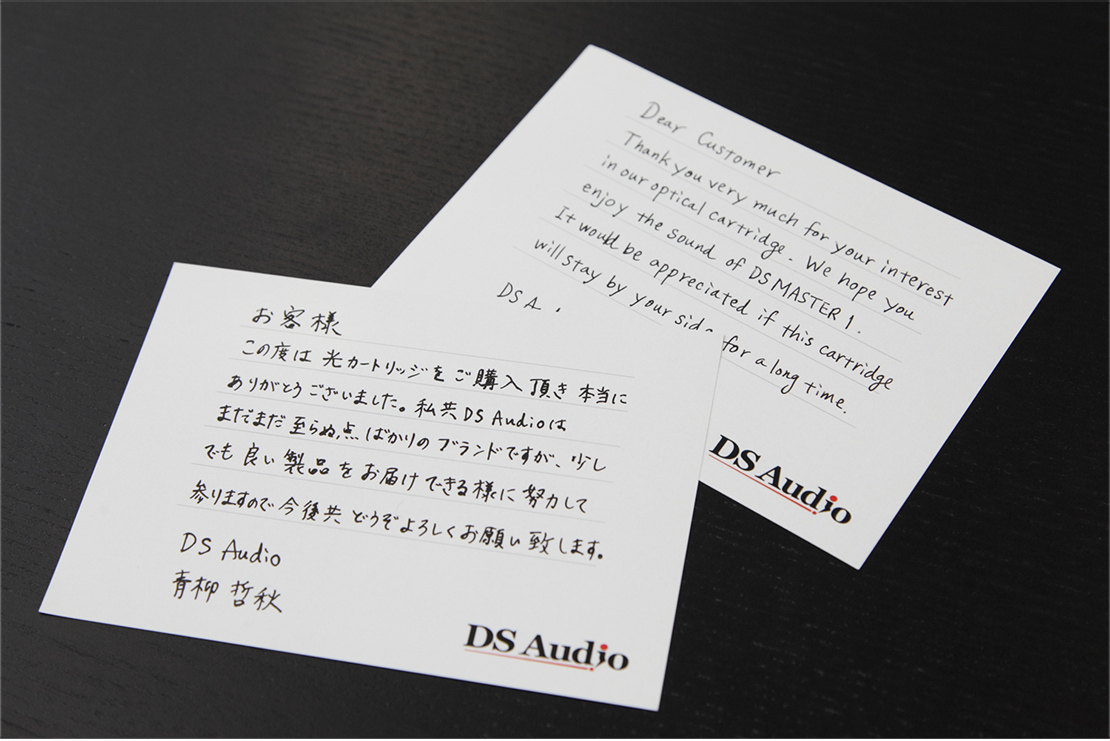 お客様
この度は 光カートリッジを ご購入 頂き 本当に
ありがとうございました。私共 DS Audioは
まだまだ 至らぬ点 ばかりの ブランドですが、少し
でも 良い 製品を お届けできる様に 努力して
参りますので 今後共 どうぞよろしくお願い致します。
DS Audio
青柳 哲秋
DS Audio
Dear Customer
Thank you very much for your interest
in our optical cartridge. We hope you
enjoy the sound of DS MASTER 1.
It would be appreciated if this cartridge
will stay by your side for a long time.
DS A
DS Audio